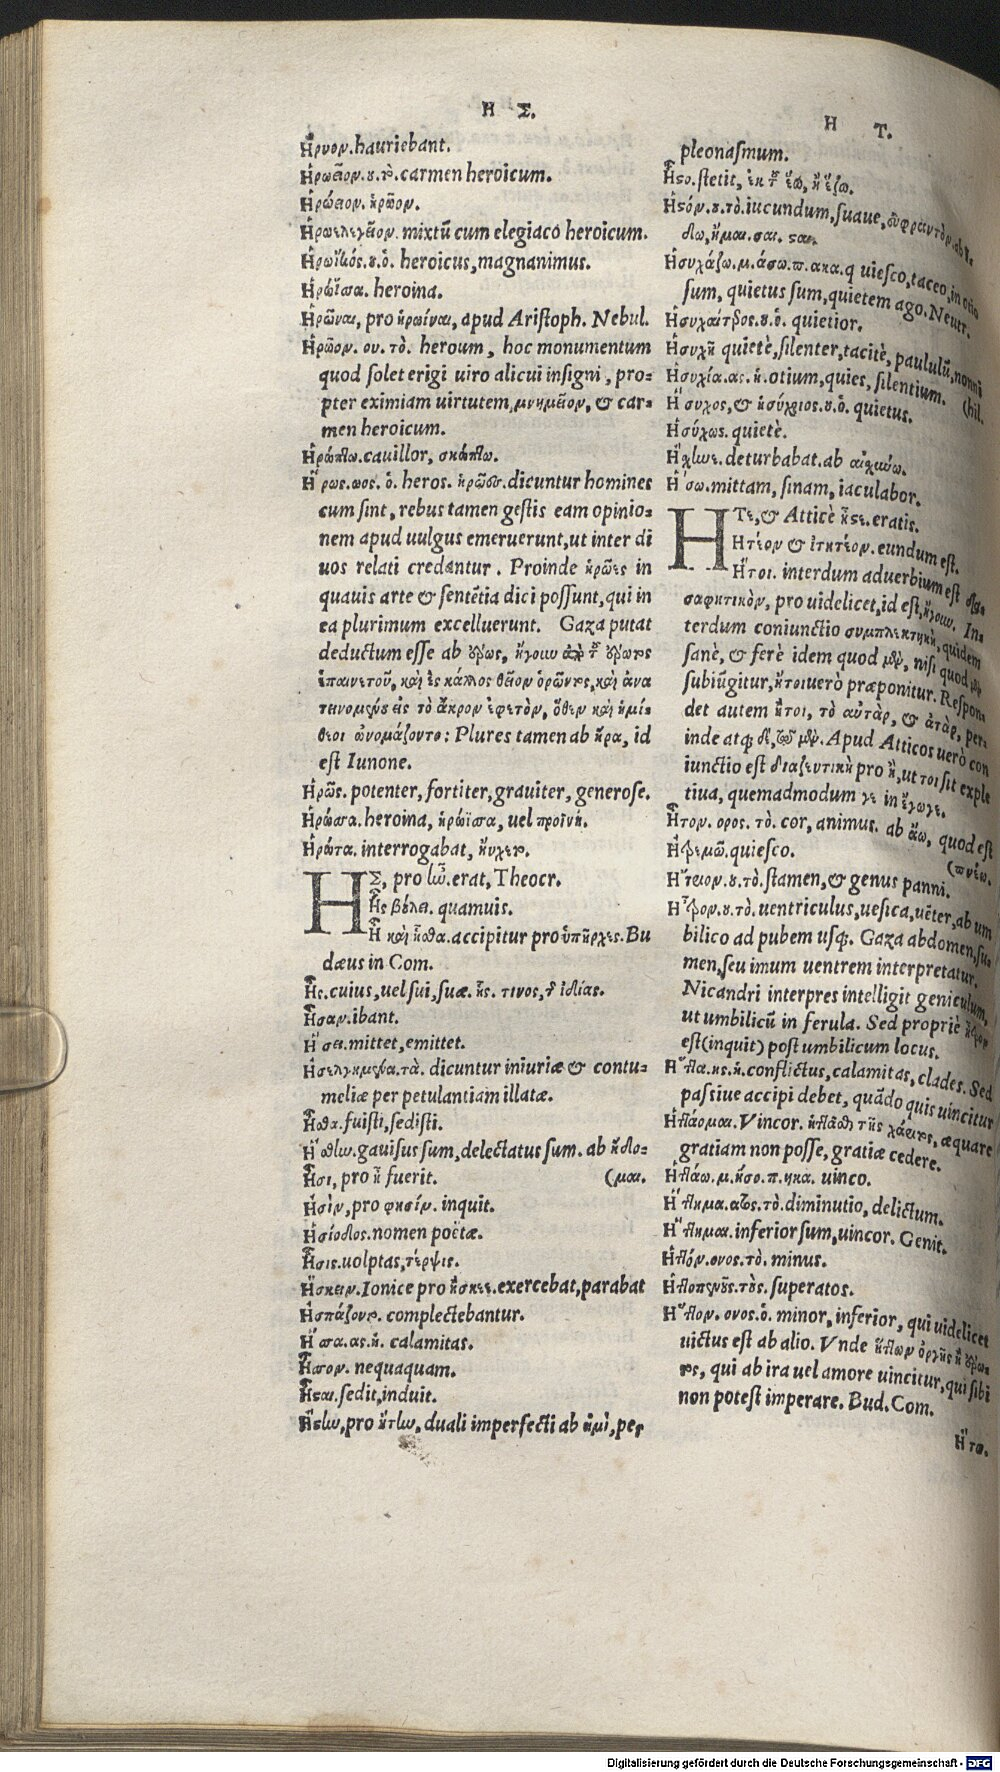 Η Σ.
Ἤρυον. hauriebant.
Ἡρωεῖον. ου. τὸ. carmen heroicum.
Ἡρώειον. ἡρῶον.
Ἡρωελεγεῖον. mixtū cum elegiaco heroicum.
Ἡρωϊκός. ου. ὁ. heroicus, magnanimus.
Ἡρώϊσσα. heroina.
Ἡρῶναι, pro ἡρωίναι, apud Aristoph. Nebul.
Ἡρῶον. ου. τὸ. heroum, hoc monumentum
quod solet erigi uiro alicui insigni, pro-
pter eximiam uirtutem, μνημεῖον, & car-
men heroicum.
Ἡρώπτω. cauillor, σκώπτω.
Ἥρως. ωος. ὁ. heros. ἡρῶες. dicuntur homines
cum sint, rebus tamen gestis eam opinio-
nem apud uulgus emeruerunt, ut inter di
uos relati credantur. Proinde ἥρωες in
quauis arte & sentētia dici possunt, qui in
ea plurimum excelluerunt. Gaza putat
deductum esse ab ἔρως, ἤγουν ἀπὸ τοῦ ἔρωτος
ἐπαινετοῦ, καὶ ἐς κάλλος θεῖον ὁρῶντος, καὶ ἀνα
τεινομένου εἰς τὸ ἄκρον ἐφετὸν, ὅθεν καὶ ἡμί-
θεοι ὠνομάζοντο: Plures tamen ab ἥρα, id
est Iunone.
Ἡρῶς. potenter, fortiter, grauiter, generose.
Ἡρῶσσα. heroina, ἡρώϊσσα, uel
Ἠρώτα. interrogabat, ἤυχετο.
ΗΣ, pro ἦν. erat, Theocr.
Ἧς βούλει. quamuis.
Ἦ καὶ ἦσθα. accipitur pro ὑπῆρχες. Bu
dæus in Com.
Ἧς. cuius, uel sui, suæ. ἧς. τινος, τῆς ἰδίας.
Ἦσαν. ibant.
Ἥσει. mittet, emittet.
Ἠσελγημένα. τὰ. dicuntur iniuriæ & contu-
meliæ per petulantiam illatæ.
Ἦσθα. fuisti, sedisti.
Ἥσθην. gauisus sum, delectatus sum. ab ἥδο-
Ἦσι, pro ᾖ fuerit. (μαι.
Ἠσὶν, pro φησίν. inquit.
Ἡσίοδος. nomen poëtæ.
Ἧσις. uolptas, τέρψις.
Ἤσκειν. Ionice pro ἤσκεε. exercebat, parabat
Ἠσπάζοντο. complectebantur.
Ἥσσα. ας. ἡ. calamitas.
Ἧσσον. nequaquam.
Ἧσται. sedit, induit.
Ἤστην, pro ἤτην, duali imperfecti ab ἠμὶ, per
Η Τ.
pleonasmum.
Ἧστο. stetit, ἐκ τοῦ ἕω, ἢ ἕζω.
Ἡστόν. ου. τὸ. iucundum, suaue, εὐφραντὸν. ab ἥ-
δω, ἧμαι. σαι. σται.
Ἡσυχάζω. μ. άσω. π. ακα. quiesco, taceo, in otio
sum, quietus sum, quietem ago. Neutr.
Ἡσυχαίτερος. ου. ὁ. quietior.
Ἡσυχῆ quietè, silenter, tacitè, paululū, nonni
Ἡσυχία. ας. ἡ. otium, quies, silentium. (hil.
Ἥσυχος, & ἡσύχιος. ου. ὁ. quietus.
Ἡσύχως. quietè.
Ἤσχυνε. deturbabat. ab αἰσχύνω.
Ἥσω. mittam, sinam, iaculabor.
ΗΤε, & Atticè ἦστε. eratis.
Ἠτέον & ἰτητέον. eundum est.
Ἤτοι. interdum aduerbium est δια-
σαφητικὸν, pro uidelicet, id est, ἤγουν. In-
terdum coniunctio συμπλεκτικὴ, quidem
sanè, & ferè idem quod μὲν, nisi quod μὲν
subiūgitur, ἤτοι uerò præponitur. Respon-
det autem ἤτοι, τὸ αὐτὰρ, & ἀτὰρ, per-
inde atq; δὲ, τῷ μὲν. Apud Atticos uerò con
iunctio est διαζευτικὴ pro ἢ, ut τοι sit exple
tiua, quemadmodum γε in ἔγωγε.
Ἦτορ. ορος. τὸ. cor, animus. ab ἄω, quod est
Ἠρεμῶ. quiesco. (πνέω.
Ἤτριον. ου. τὸ. stamen, & genus panni.
Ἦτρον. ου. τὸ. uentriculus, uesica, uēter, ab um
bilico ad pubem usq;. Gaza abdomen, su-
men, seu imum uentrem interpretatur.
Nicandri interpres intelligit geniculum,
ut umbilicū in ferula. Sed propriè ἦτρον
est (inquit) post umbilicum locus.
Ἧττα. ης. ἡ. conflictus, calamitas, clades. Sed
passiue accipi debet, quādo quis uincitur
Ἡττάομαι. Vincor. ἡττᾶσθαι τῆς χάριτος, æquare
gratiam non posse, gratiæ cedere.
Ἡττάω. μ. ήσο. π. ηκα. uinco.
Ἥττημα. ατος. τὸ. diminutio, delictum.
Ἥττημαι. inferior sum, uincor. Genit.
Ἡττόν. ονος. τὸ. minus.
Ἡττοπενους. τοὺς. superatos.
Ἥττον. ονος. ὁ. minor, inferior, qui uidelicet
uictus est ab alio. Vnde ἥττων ὀργῆς ἢ ἔρωτος
, qui ab ira uel amore uincitur, qui sibi
non potest imperare. Bud. Com.
Ἥττω.
Digitalisierung gefördert durch die Deutsche Forschungsgemeinschaft - DFG